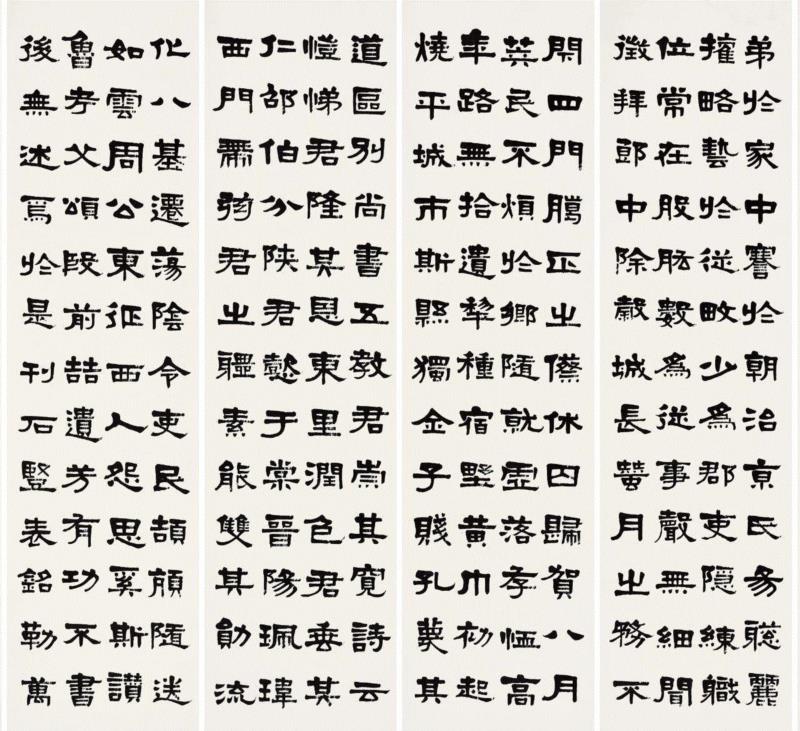 弟於家中謇於朝治京氏易聰麗
權略藝於從畋少為郡吏隱練職
位常在股肱數為從事聲無細聞
徵拜郎中除穀城長蠶月之務不
閇四門臘正之傺休囚歸賀八月
筭民不煩於鄉隨就虛落存恤高
年路無拾遺犁種宿野黃巾初起
燒平城市斯縣獨全子賤孔蔑其
道區別尚書五教君崇其寬詩云
愷悌君隆其恩東里潤色君垂其
仁邵伯分陝君懿于棠晉陽珮瑋
西門帶弦君之體素能雙其勛流
化八基遷蕩陰令吏民頡頏隨送
如雲周公東征西人怨思奚斯讚
魯考父頌殷前喆遺芳有功不書
後無述焉於是刊石豎表銘勒萬